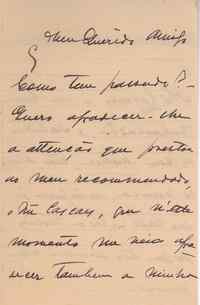 Meu Querido Amigo
Como tem passado? -
Quero agradecer-lhe
a attenção que prestou
ao meu recommendado,
que n'este
momento me veio agra-
decer tambem a minha